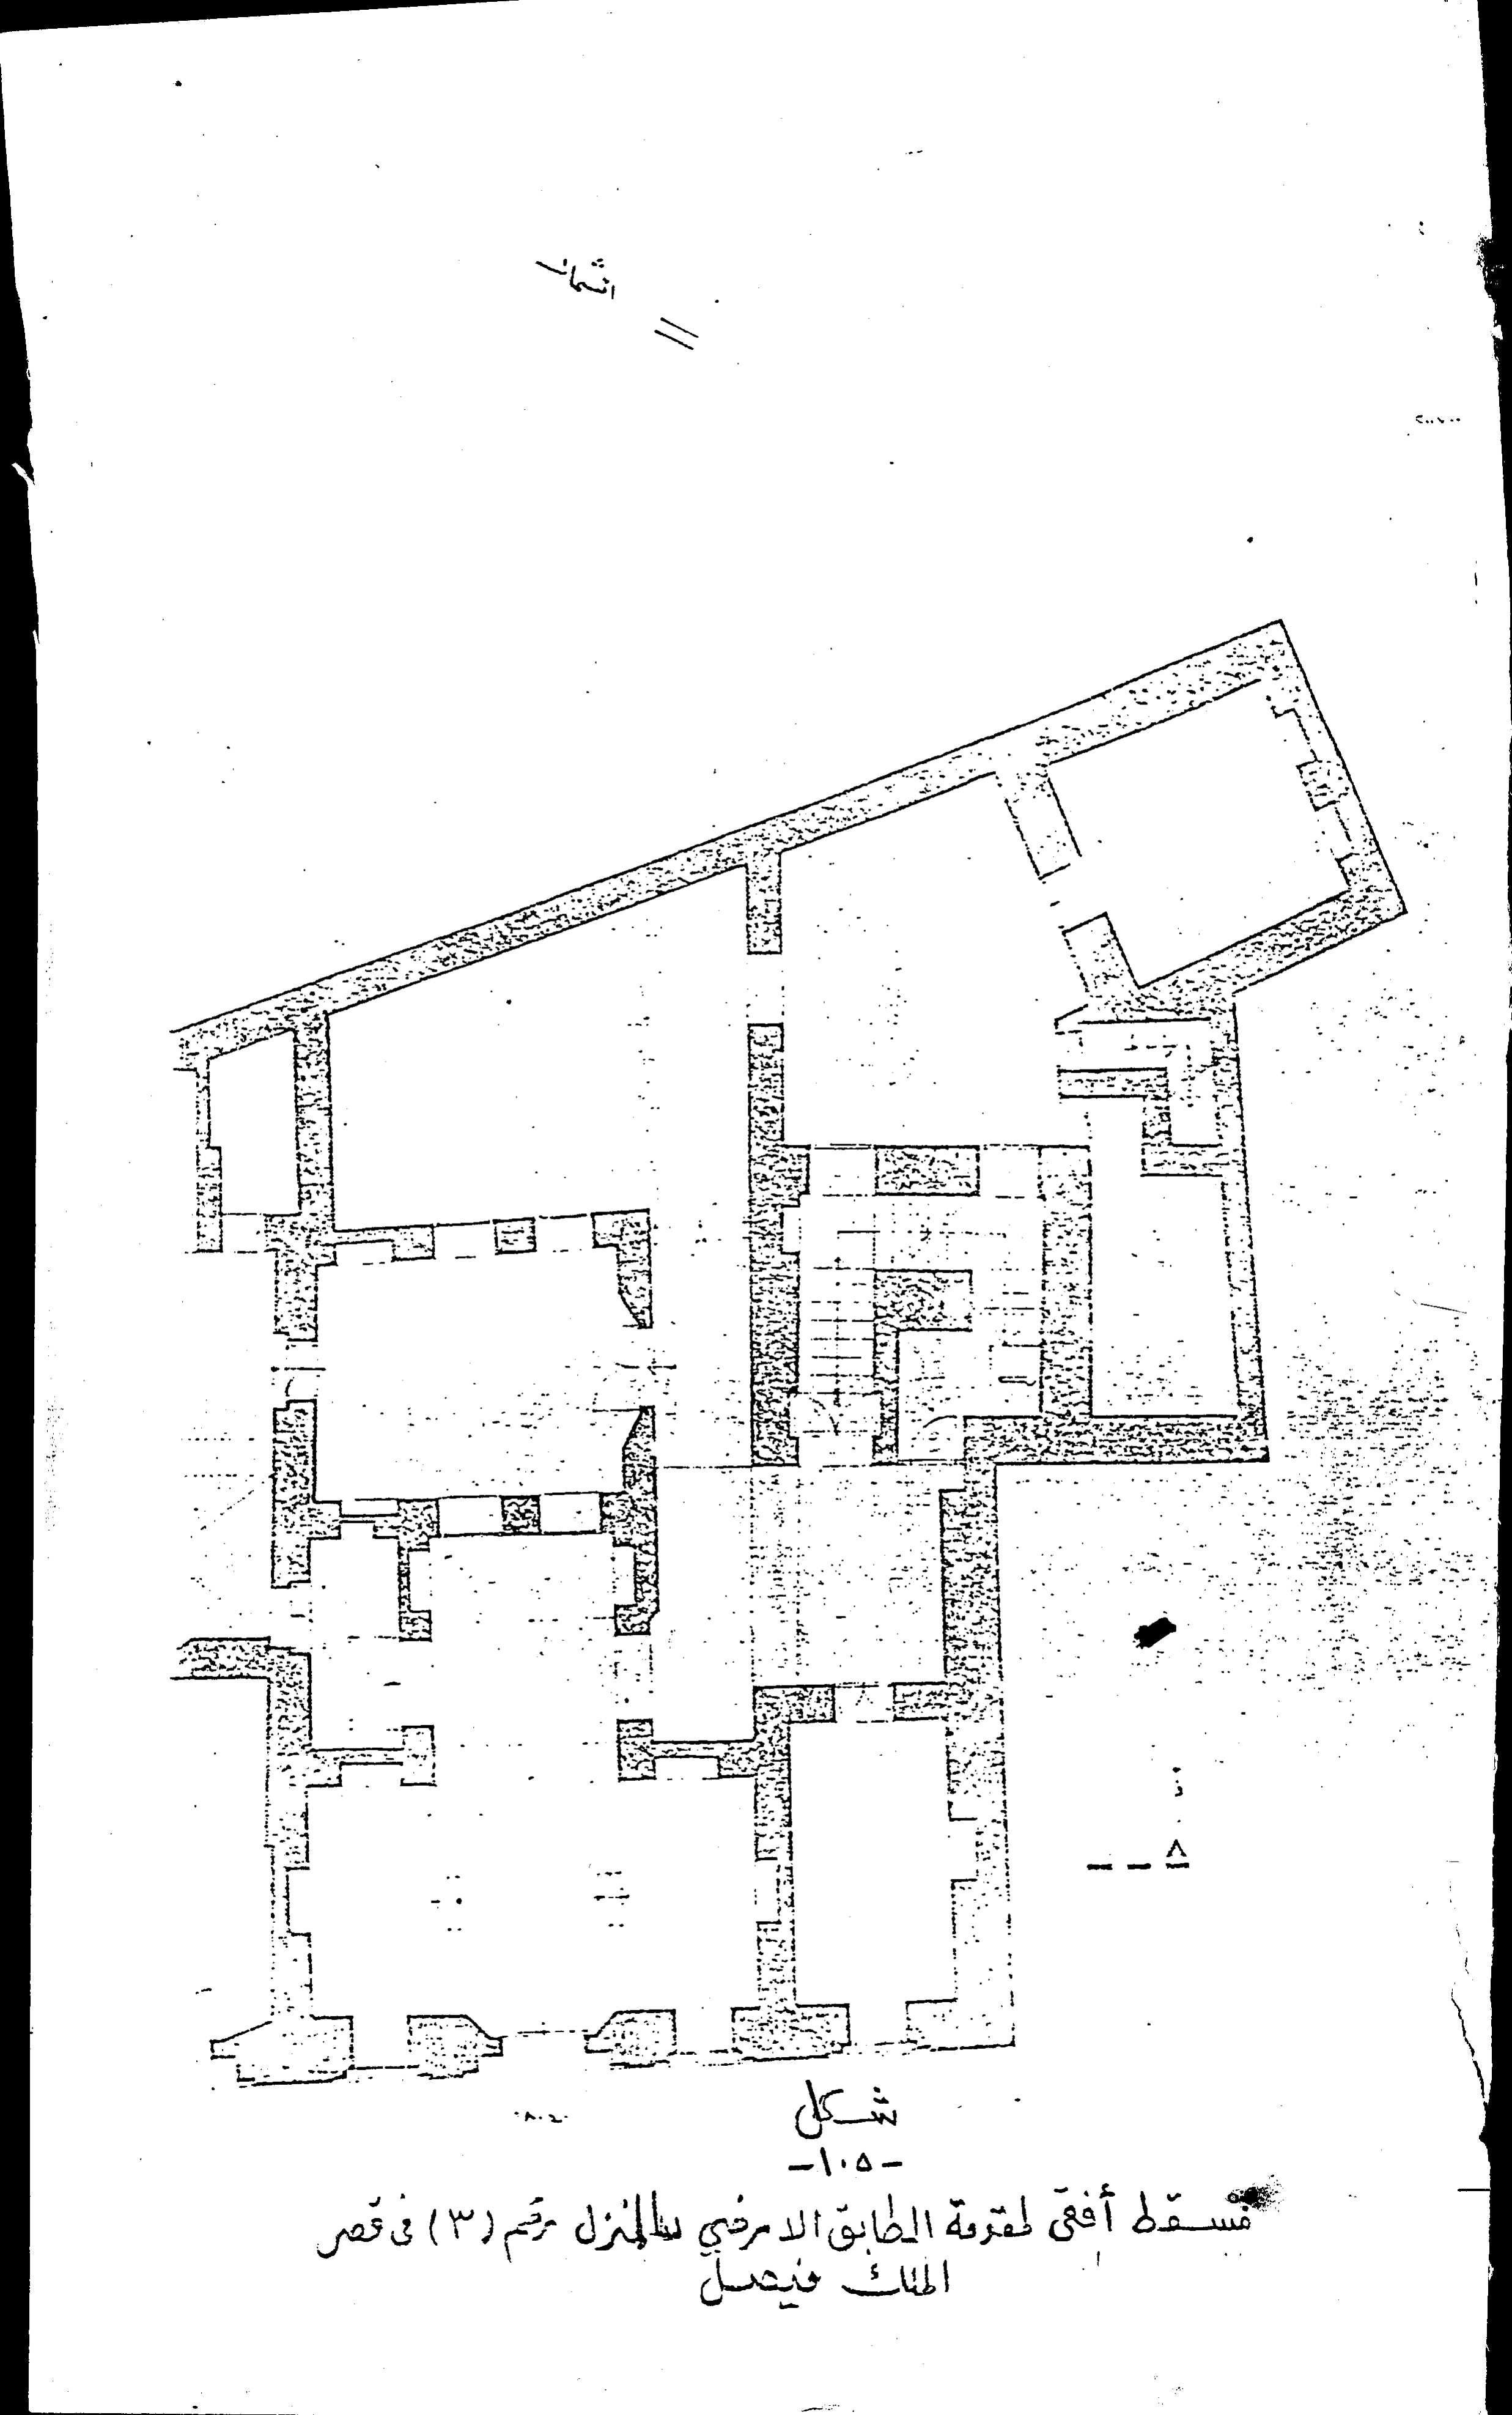 الشمال
شكل
-١٠٥-
مسقط أفقى لمقدمة الطابق الارضي للمنزل رقم (٣) فى قصر
الملك فيصل